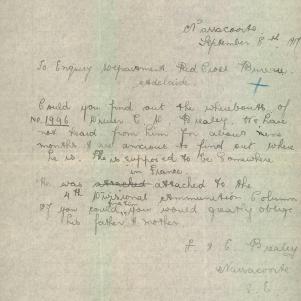 Narracoorte
September 8th 1917
To Enquiry Department Red Cross Bureau
Adelaide
Could you find out the whereabouts of
No. 1996 Driver C W Bealey. We have
not heard from him for about nine
months & am anxious to find out where
he is. He is supposed to be somewhere
in France
He was attached attached to the
4th Divisional Ammunition Column
If you could you would greatly oblige
his father & mother
F. & E. Bealey
Narracoorte
S.E.